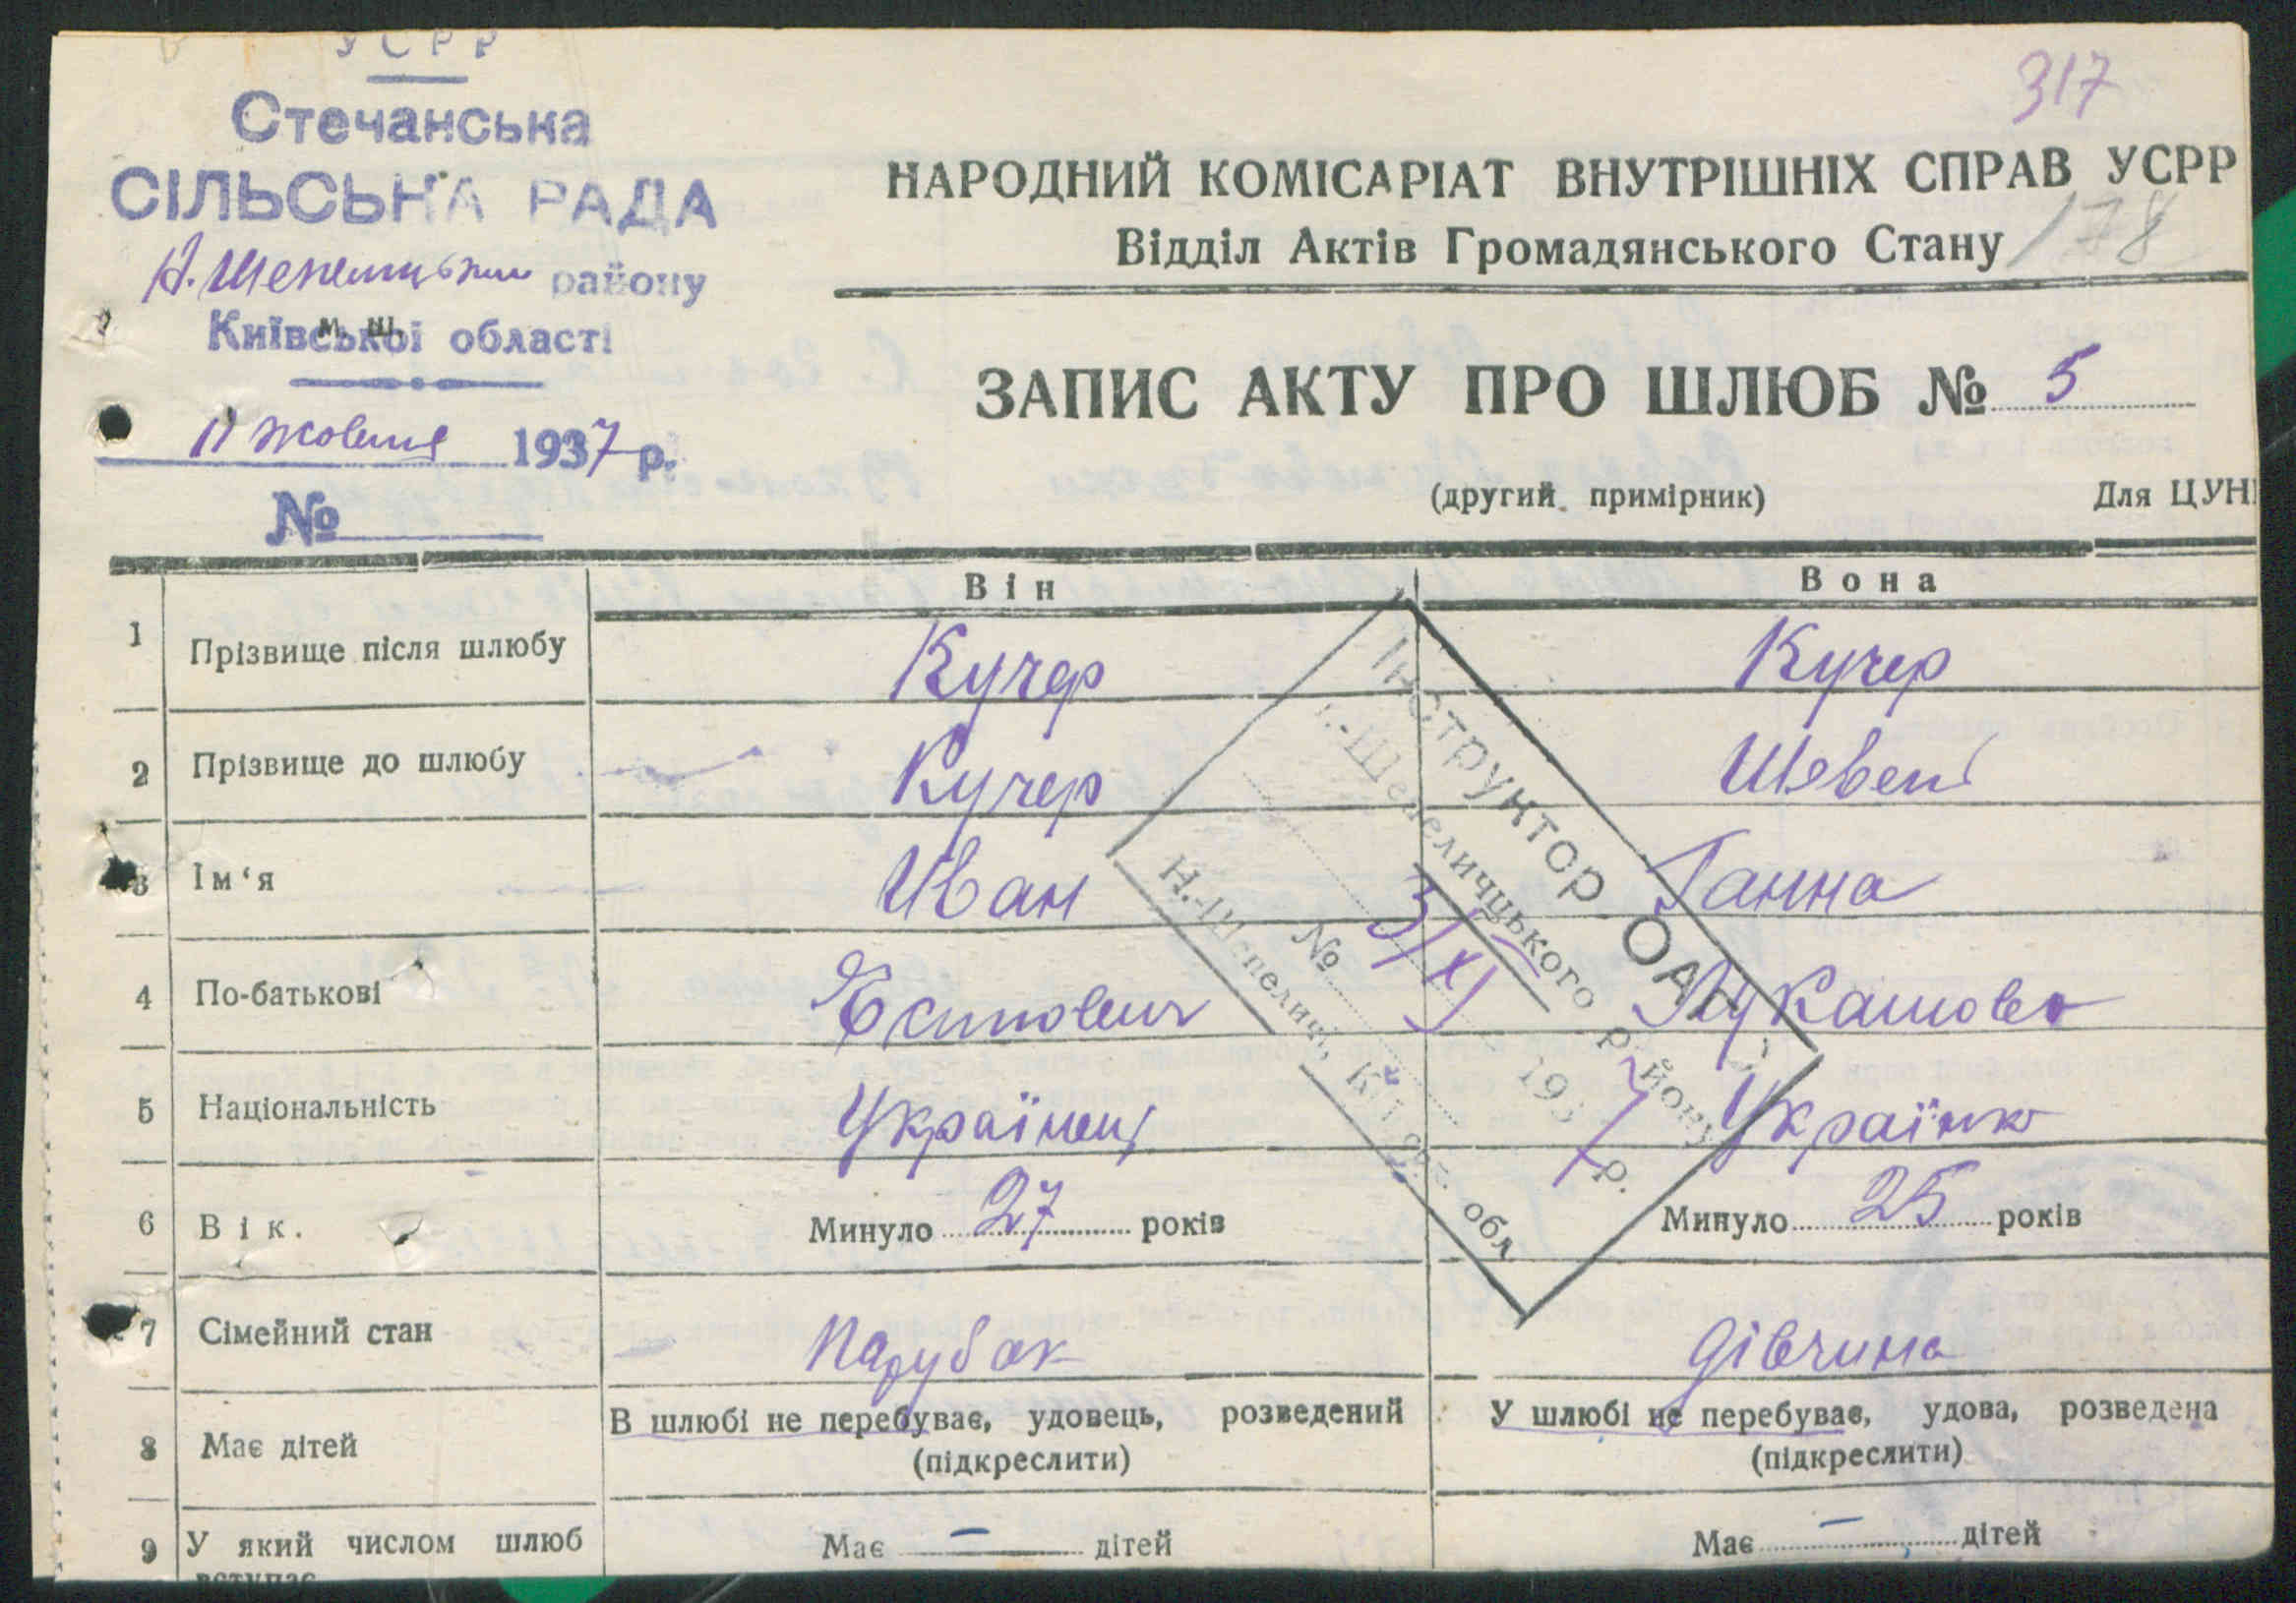 УСРР
317
Стечанська
СІЛЬСЬКА РАДА
району
Київської області
м. ш.
11 жовтня 1937 р.
№
НАРОДНИЙ КОМІСАРІАТ ВНУТРІШНІХ СПРАВ УСРР
Відділ Актів Громадянського Стану
178
ЗАПИС АКТУ ПРО ШЛЮБ № 5
(другий примірник) Для ЦУН
Він Вона
1 Прізвище після шлюбу Кучер Кучер
2 Прізвище до шлюбу Кучер
3 Ім‘я Иван Ганна
4 По-батькові
5 Національність Українець Українка
6 Вік. Минуло 27 років Минуло 25 років
7 Сімейний стан Парубок дівчина
В шлюбі не перебуває, удовець, розведений У шлюбі не перебуває, удова, розведена
(підкреслити) (підкреслити)
8 Має дітей
Має — дітей Має — дітей
9 У який числом шлюб
вступає
Інструктор ОАГС
Н.-Шепелицького району
№ 3/XI 1937 р.
Н.-Шепеличі, Київськ. обл.